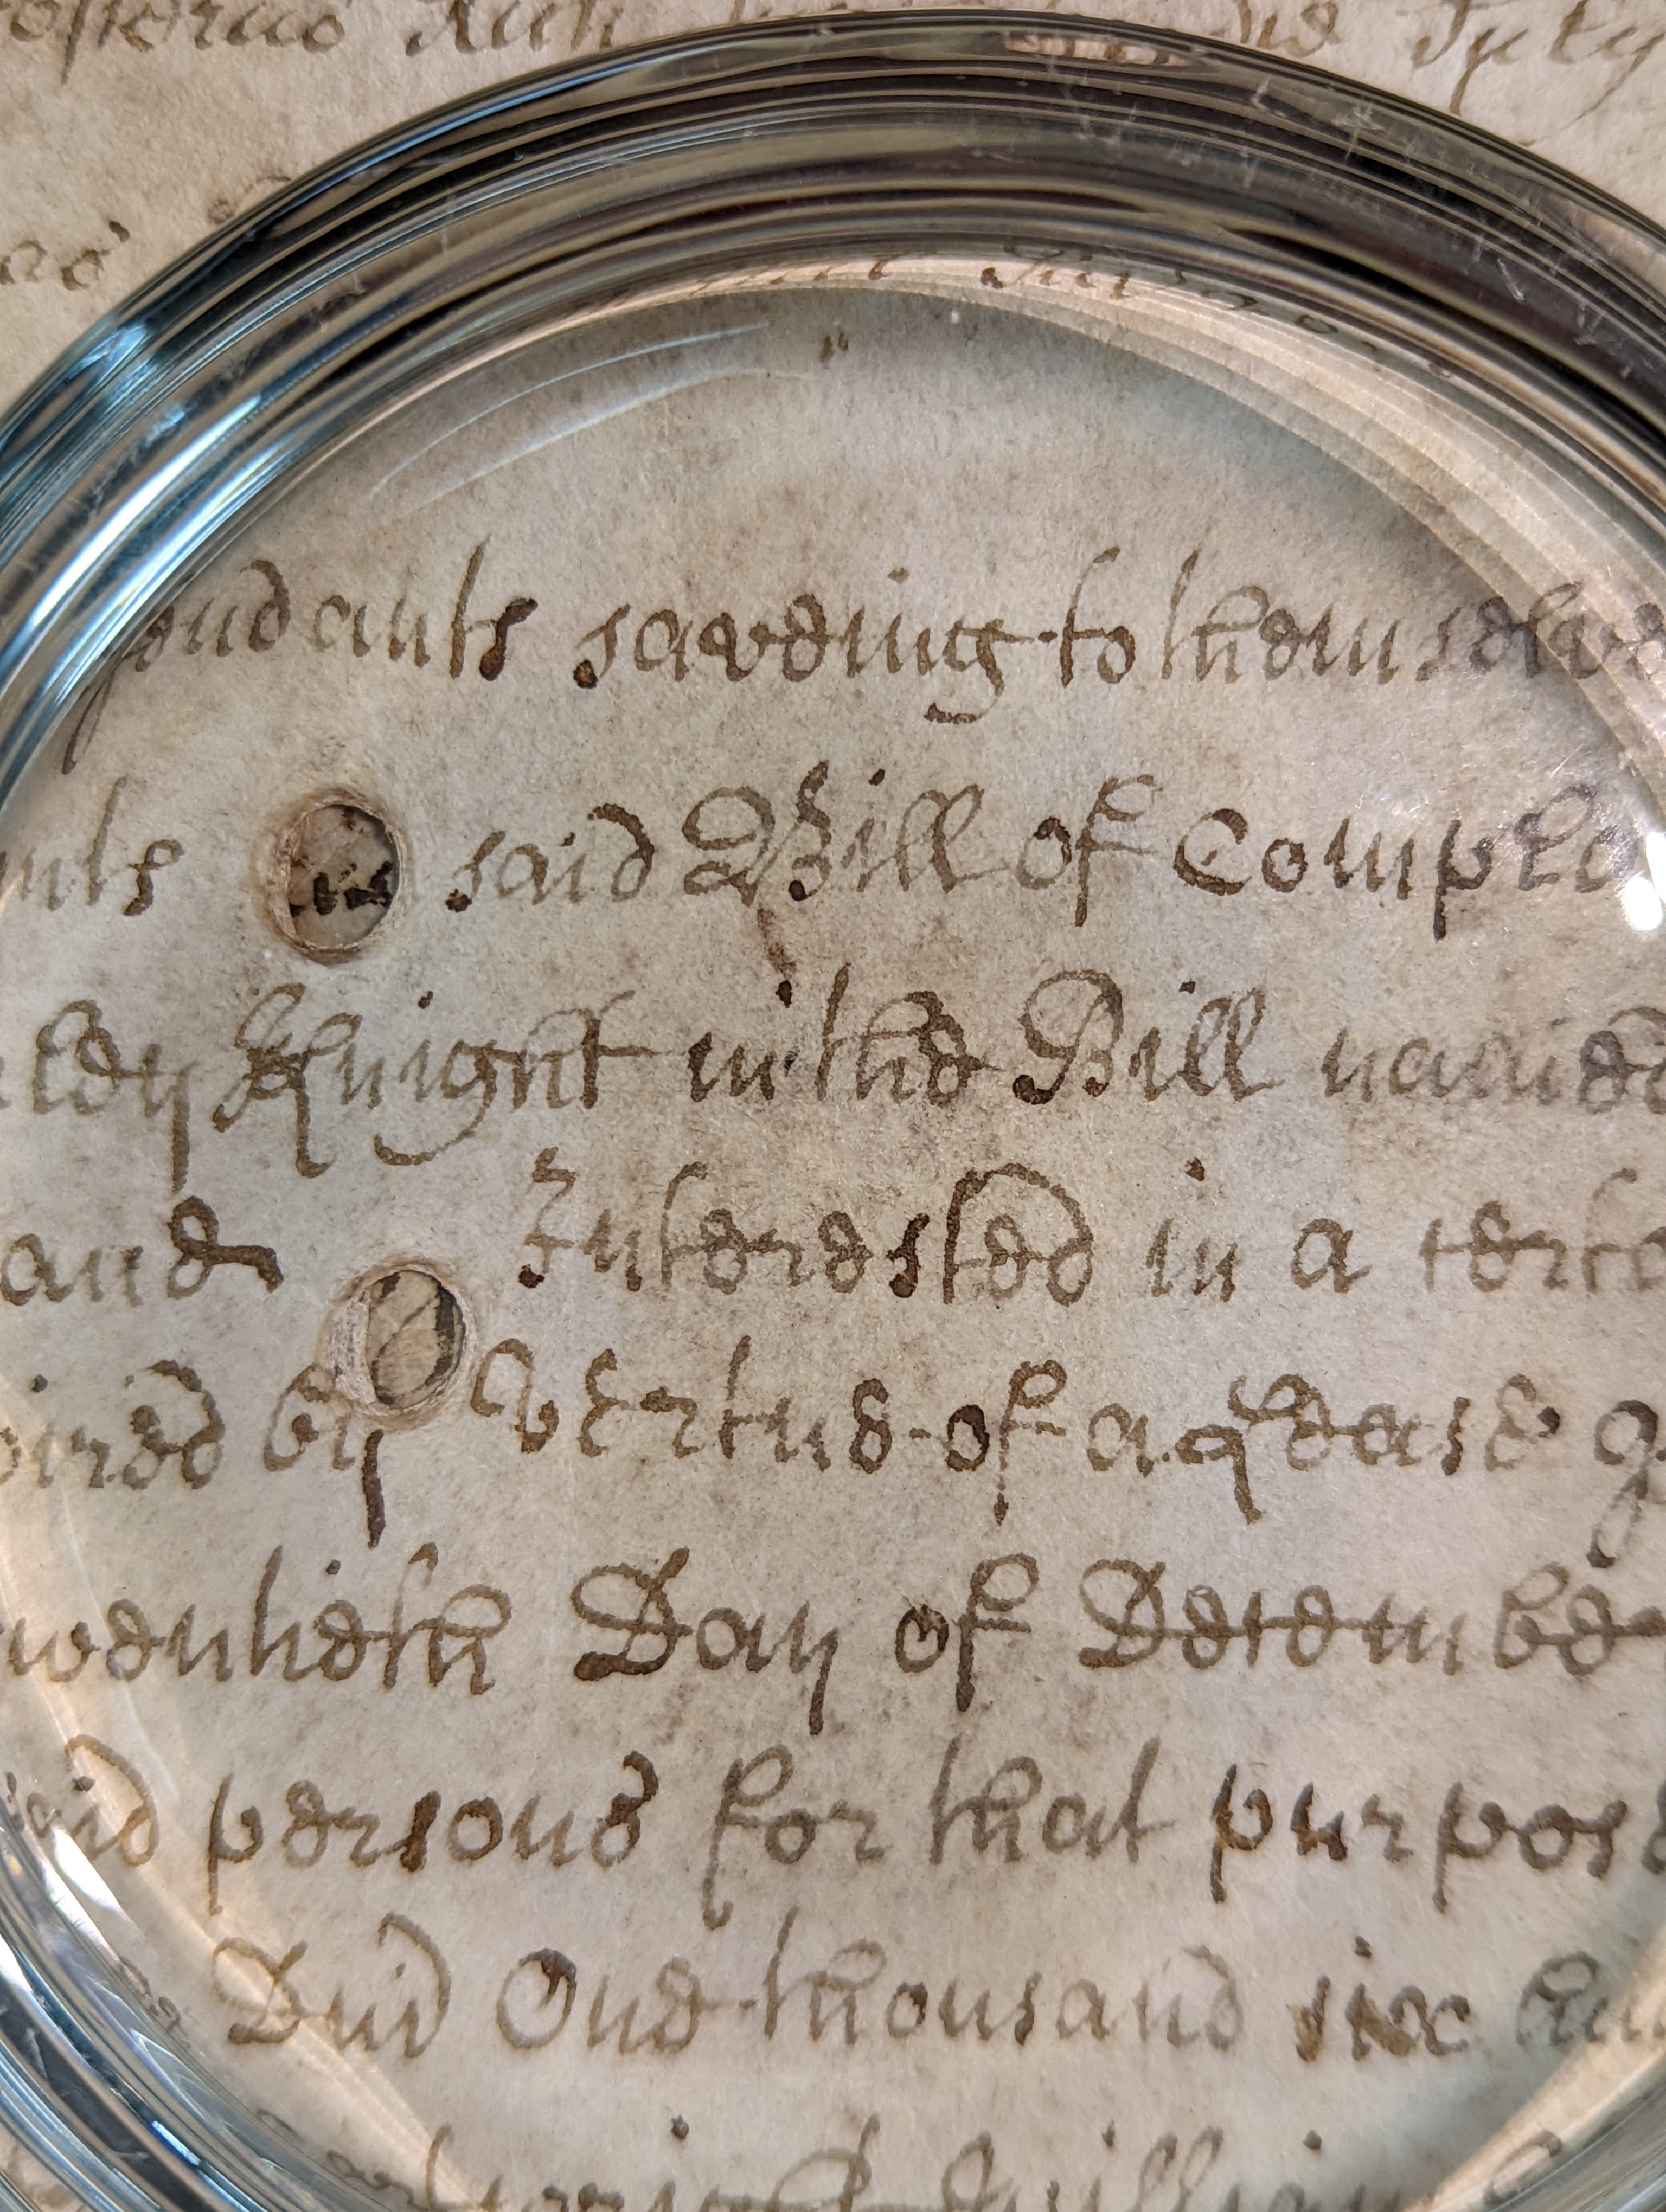 July
fendants saveing to themselve
nts said Bill of Compla
ley Knight in the Bill named
and Interested in a certa
uired by Vertue of a Lease g
wentieth Day of December
aid persons for that purpose
Duid One thousand six hu